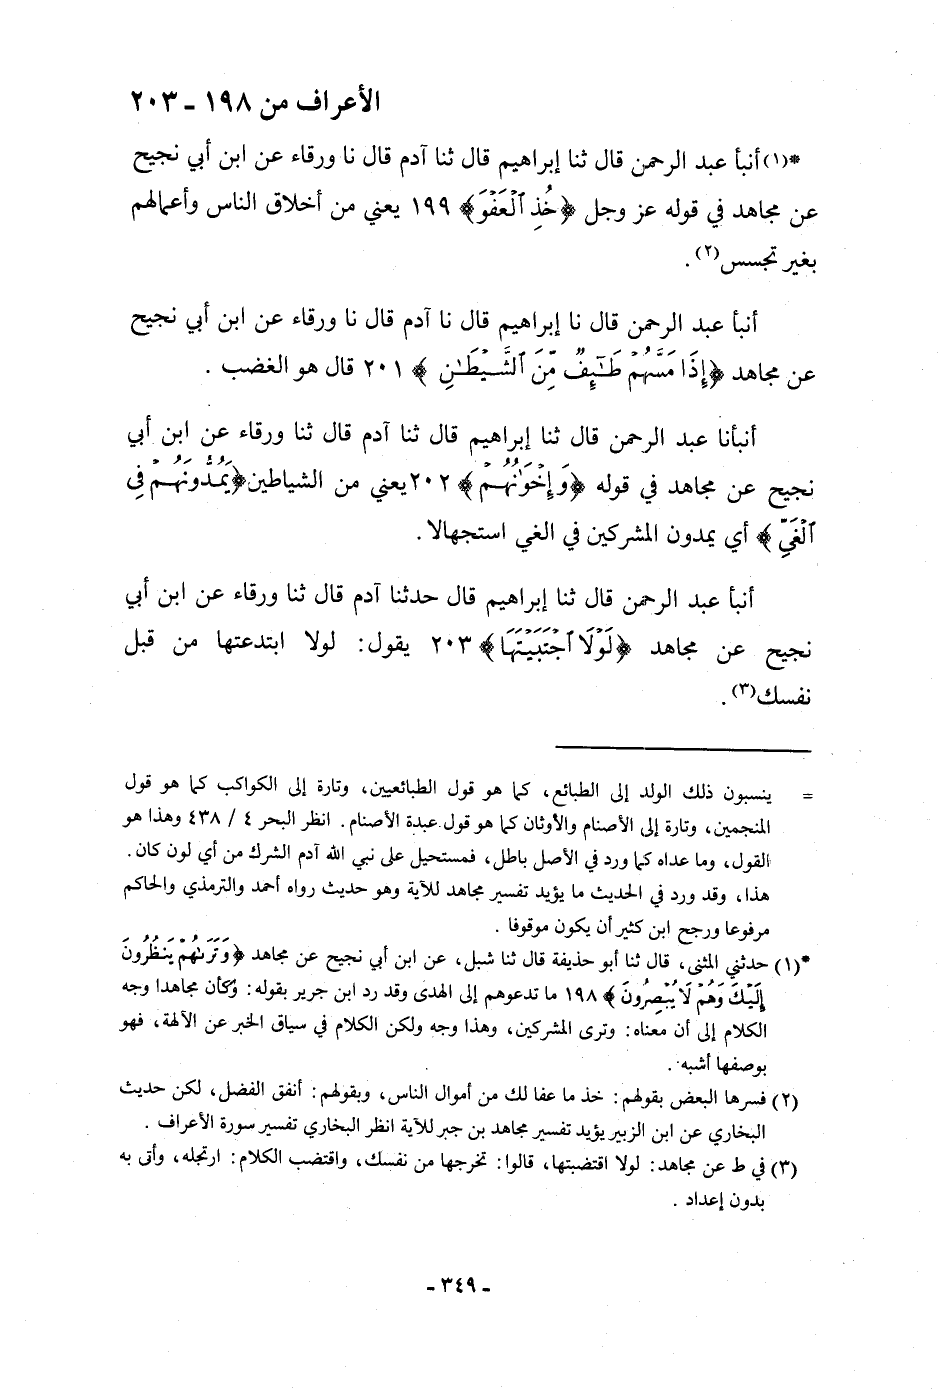 الأعراف من ١٩٨ - ٢٠٣
*(١) أنبأ عبد الرحمن قال ثنا إبراهيم قال ثنا آدم قال نا ورقاء عن ابن أبي نجيح
عن مجاهد في قوله عز وجل ﴿خُذِ ٱلْعَفْوَ﴾ ١٩٩ يعني من أخلاق الناس وأعمالهم
بغير تجسس(٢).
أنبأ عبد الرحمن قال نا إبراهيم قال نا آدم قال نا ورقاء عن ابن أبي نجيح
عن مجاهد ﴿إِذَا مَسَّهُمْ طَٰٓئِفٌ مِّنَ ٱلشَّيْطَٰنِ﴾ ٢٠١ قال هو الغضب .
أنبأنا عبد الرحمن قال ثنا إبراهيم قال ثنا آدم قال ثنا ورقاء عن ابن أبي
نجيح عن مجاهد في قوله ﴿وَإِخْوَٰنُهُمْ﴾ ٢٠٢ يعني من الشياطين ﴿يَمُدُّونَهُمْ فِى
ٱلْغَيِّ﴾ أي يمدون المشركين في الغي استجهالا .
أنبأ عبد الرحمن قال ثنا إبراهيم قال حدثنا آدم قال ثنا ورقاء عن ابن أبي
نجيح عن مجاهد ﴿لَوْلَا ٱجْتَبَيْتَهَا﴾ ٢٠٣ يقول: لولا ابتدعتها من قبل
نفسك(٣).
= ينسبون ذلك الولد إلى الطبائع، كما هو قول الطبائعيين، وتارة إلى الكواكب كما هو قول
المنجمين، وتارة إلى الأصنام والأوثان كما هو قول عبدة الأصنام. انظر البحر ٤ / ٤٣٨ وهذا هو
القول، وما عداه كما ورد في الأصل باطل، فمستحيل على نبي الله آدم الشرك من أي لون كان.
هذا، وقد ورد في الحديث ما يؤيد تفسير مجاهد للآية وهو حديث رواه أحمد والترمذي والحاكم
مرفوعا ورجح ابن كثير أن يكون موقوفا .
*(١) حدثني المثنى، قال ثنا أبو حذيفة قال ثنا شبل، عن ابن أبي نجيح عن مجاهد ﴿وَتَرَىٰهُمْ يَنظُرُونَ
إِلَيْكَ وَهُمْ لَا يُبْصِرُونَ﴾ ١٩٨ ما تدعوهم إلى الهدى وقد رد ابن جرير بقوله: وكأن مجاهدا وجه
الكلام إلى أن معناه: وترى المشركين، وهذا وجه ولكن الكلام في سياق الخبر عن الآلهة، فهو
بوصفها أشبه .
(٢) فسرها البعض بقولهم: خذ ما عفا لك من أموال الناس، وبقولهم: أنفق الفضل، لكن حديث
البخاري عن ابن الزبير يؤيد تفسير مجاهد بن جبر للآية انظر البخاري تفسير سورة الأعراف .
(٣) في ط عن مجاهد: لولا اقتضبتها، قالوا: تخرجها من نفسك، واقتضب الكلام: ارتجله، وأتى به
بدون إعداد .
- ٣٤٩ -